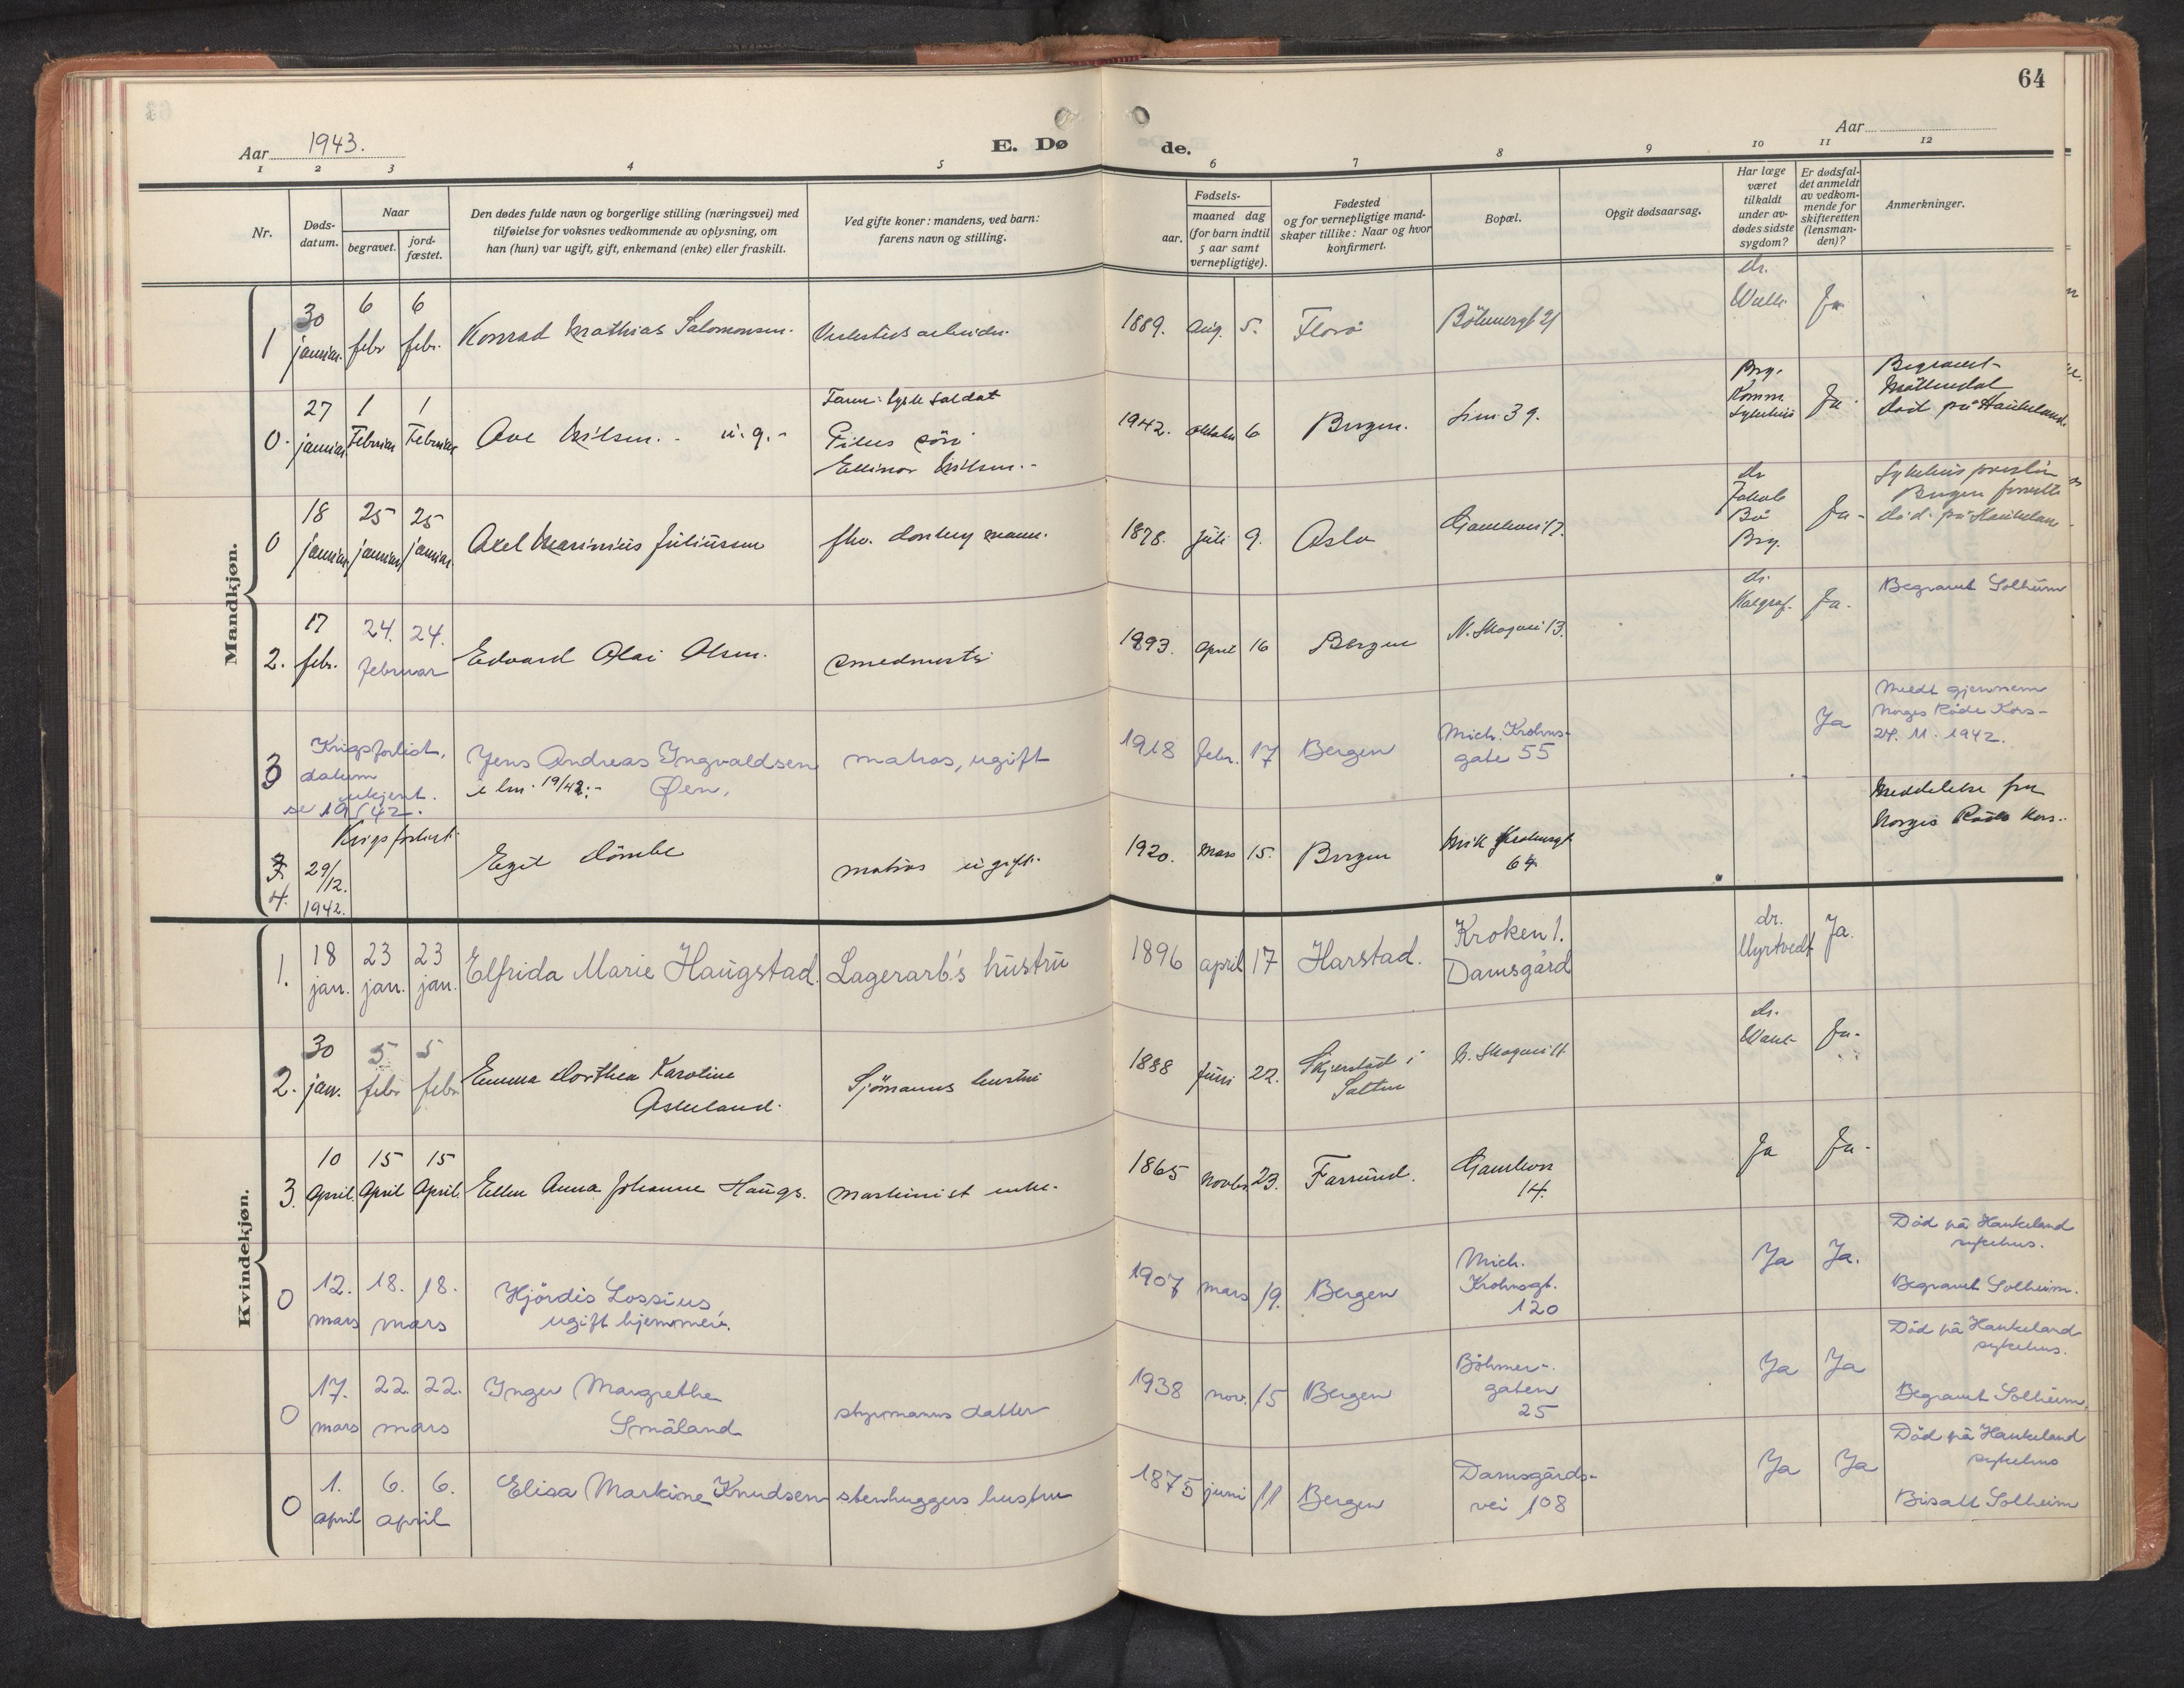 64
Aar 1943.
E. Døde.
Aar
1 2 3 4 5 6 7 8 9 10 11 12
Nr.
Døds-
datum.
Naar
begravet.
jord-
fæstet.
Den dødes fulde navn og borgerlige stilling (næringsvei) med
tilføielse for voksnes vedkommende av oplysning, om
han (hun) var ugift, gift, enkemand (enke) eller fraskilt.
Ved gifte koner: mandens, ved barn:
farens navn og stilling.
Fødsels-
aar.
maaned dag
(for barn indtil
5 aar samt
vernepligtige).
Fødested
og for vernepligtige mand-
skaper tillike: Naar og hvor
konfirmert.
Bopæl.
Opgit dødsaarsag.
Har læge
været
tilkaldt
under av-
dødes sidste
sygdom?
Er dødsfal-
det anmeldt
av vedkom-
mende for
skifteretten
(lensman-
den)?
Anmerkninger.
Mandkjøn.
1 30 januar. 6 febr 6 febr. Konrad Mathias Salomonsen. 1889. Aug. 5. Florø dr. Ja
0. 27 januar. 1 Februar 1 Februar Nilsen. - u.g. -
Ellinor Nilsen. -
1942. 6 Bergen. 39. Ja
Begravet
Møllendal
død på Haukeland
0 18 januar 25 januar 25 januar Axel Marinius Juliussen 1878. juli 9. Oslo 17. dr Ja -
død på Haukeland
2. 17 febr. 24. 24. februar Edvard Olai Olsen. smedmester 1893. April 16 Bergen N. Skogvei 13. dr. Kalgraf. Ja. Begravet Solheim
3 Krigsforlist,
datum
ukjent.
se 19/42.
Jens Andreas Ingvaldsen
Øen.
matros, ugift 1918 febr. 17 Bergen
Mich. Krohns-
gate 55
Ja
Meldt gjennem
Norges Røde Kors -
24. 11. 1942.
4. Krigsforlist
29/12.
1942.
Egil matros ugift. 1920. Mars 15. Bergen
64.
Meddelelse fra
Norges Røde Kors.
Kvindekjøn.
1. 18 jan. 23 jan. 23 jan. Elfrida Marie Haugstad. Lagerarb's hustru 1896 april 17 Harstad.
Kroken 1.
Damsgård
dr.
Myrtvedt
Ja.
2. 30 jan. 5 febr 5 febr Emma Dorthea Karoline
Askeland.
Sjömanns hustru 1888 Juni 22.
Skjerstad i
Salten
dr. Ja.
3. 10 April. 15 April 15 April. Ellen Anna Johanne Haugs. Maskinist enke. 1865 Novbr. 23. Farsund.
14.
Ja Ja -
0 12. mars 18. 18. mars Hjördis Lossius,
ugift hjemmev.
1907 mars 19. Bergen
Mich.
Krohnsgt.
120
Ja Ja.
Död på Haukeland
sykehus.
Begravet Solheim.
0 17. mars 22. 22. mars Inger Margrethe
Småland
styrmanns datter 1938 nov. 15 Bergen
Böhmer-
gaten
25
Ja Ja
Död på Haukeland
sykehus.
Begravet Solheim.
0 1. april 6. 6. april Elisa Markine Knudsen stenhuggers hustru 1875 juni 11 Bergen
Damsgårds-
vei 108
Ja Ja
Död på Haukeland
sykehus
Bisatt Solheim